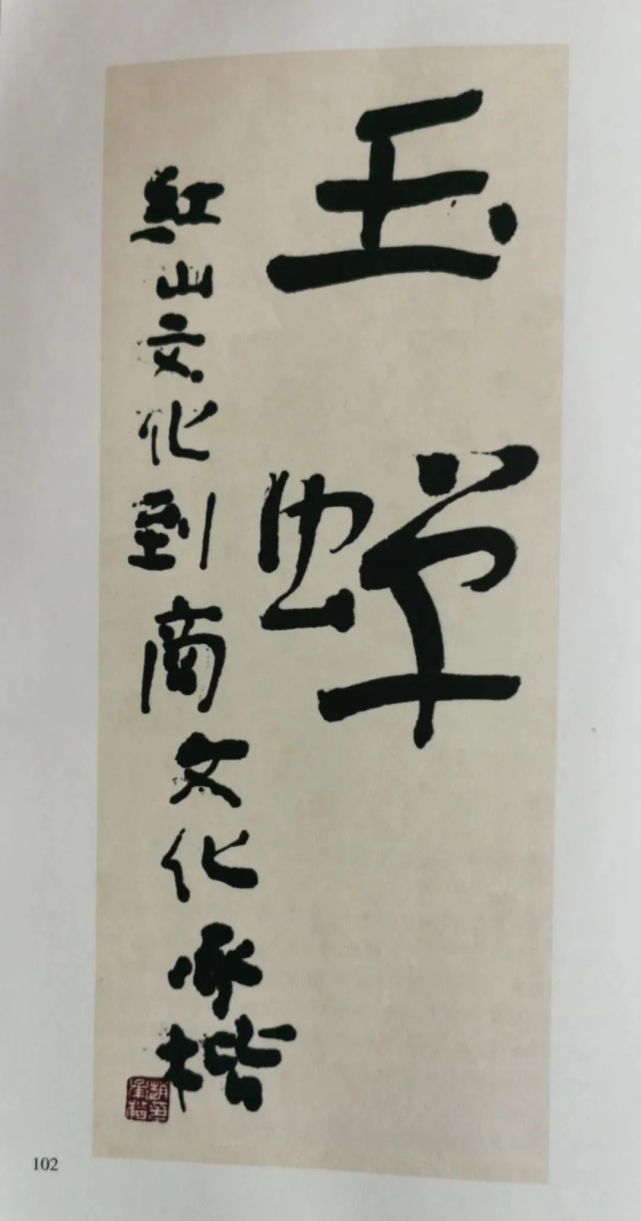 玉蟬
紅山文化到商文化承楷
102